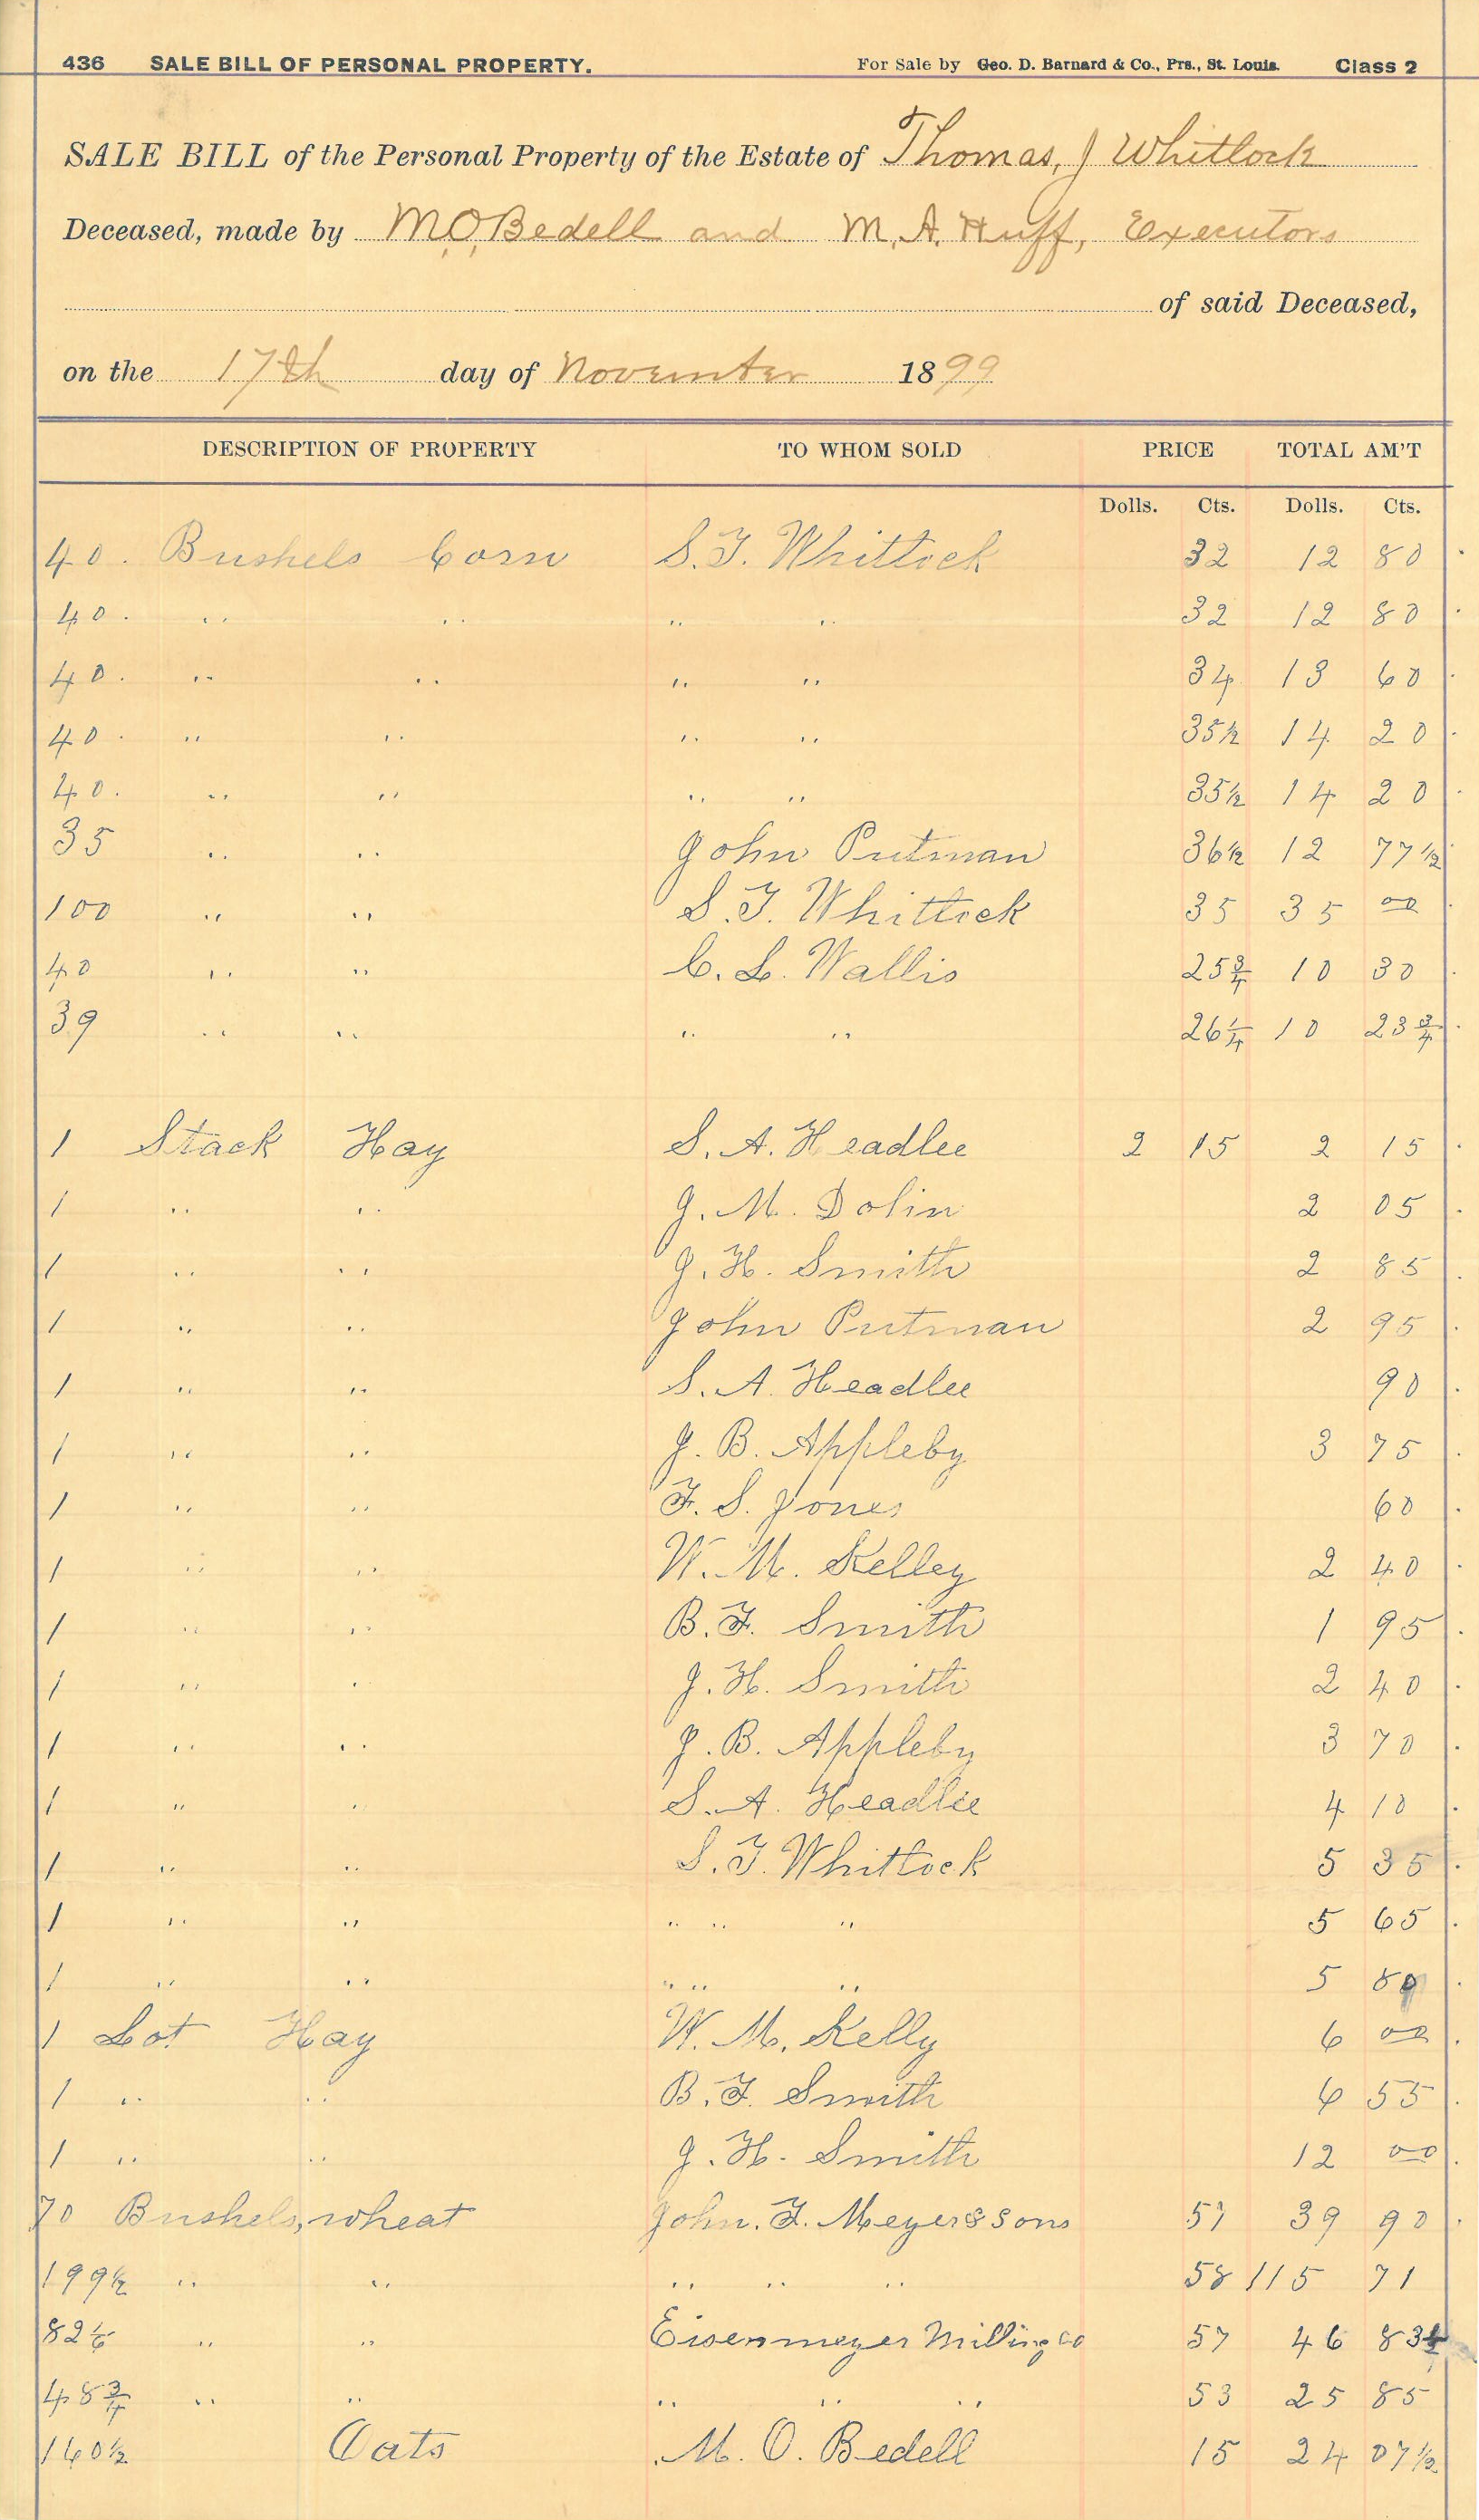 436 SALE BILL OF PERSONAL PROPERTY. For Sale by Geo. D. Barnard & Co., Prs., St. Louis. Class 2
SALE BILL of the Personal Property of the Estate of Thomas, J Whitlock
Deceased, made by M.O. Bedell and M. A. Huff, Executors
of said Deceased,
on the 17th day of November 1899
DESCRIPTION OF PROPERTY TO WHOM SOLD PRICE TOTAL AM'T
Dolls. Cts. Dolls. Cts.
40. Bushels Corn S. T. Whitlock 32 12 80
40. " " " " 32 12 80
40. " " " " 34 13 60
40. " " " " 35½ 14 20
40. " " " " 35½ 14 20
35 " " John Putman 36½ 12 77½
100 " " S. T. Whitlock 35 35 00
40 " " C. L. Wallis 25¾ 10 30
39 " " " " 26¼ 10 23¾
1 Stack Hay S. A. Headlee 2 15 2 15
1 " " J. M. Dolin 2 05
1 " " J. H. Smith 2 85
1 " " John Putman 2 95
1 " " S. A. Headlee 90
1 " " J. B. Appleby 3 75
1 " " F. S. Jones 60
1 " " W. M. Kelley 2 40
1 " " B. F. Smith 1 95
1 " " J. H. Smith 2 40
1 " " J. B. Appleby 3 70
1 " " S. A. Headlee 4 10
1 " " S. T. Whitlock 5 35
1 " " " " " 5 65
1 " " " " " 5 80
1 Lot Hay W. M. Kelly 6 00
1 " " B. F. Smith 6 55
1 " " J. H. Smith 12 00
70 Bushels, wheat John. F. Meyer & Sons 57 39 90
199½ " " " " " 58 115 71
82⅙ " " Eisenmeyer Milling Co 57 46 83½
48¾ " " " " " 53 25 85
160½ Oats M. O. Bedell 15 24 07½